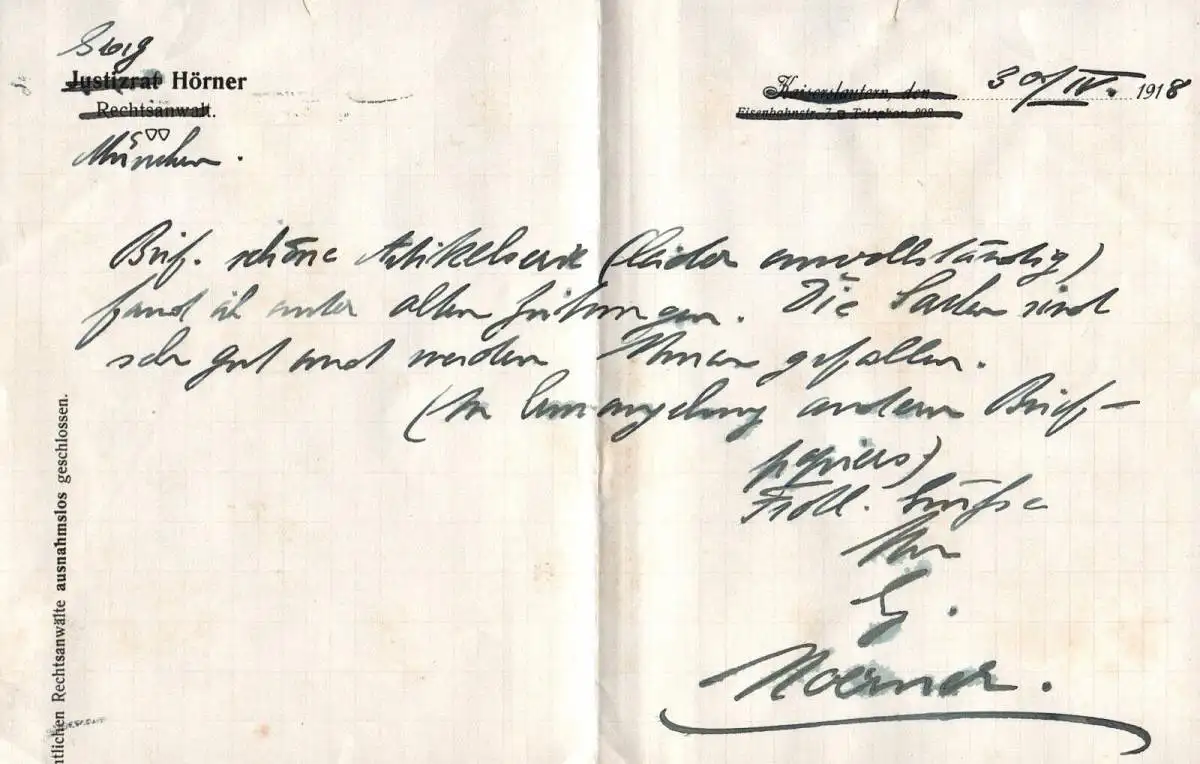 Georg
Justizrat Hörner
Rechtsanwalt.
München.
Kaiserslautern, den 30/IV. 1918
Eisenbahnstr. 7 Telephon 898
Beif. schöne Artikelserie (leider unvollständig)
fand ich unter alten Zeitungen. Die Sachen sind
sehr gut und werden Ihnen gefallen.
(In Ermangelung andern Brief-
papiers)
Frdl. Grüße
Ihr
G.
Hoerner.
ntlichen Rechtsanwälte ausnahmslos geschlossen.